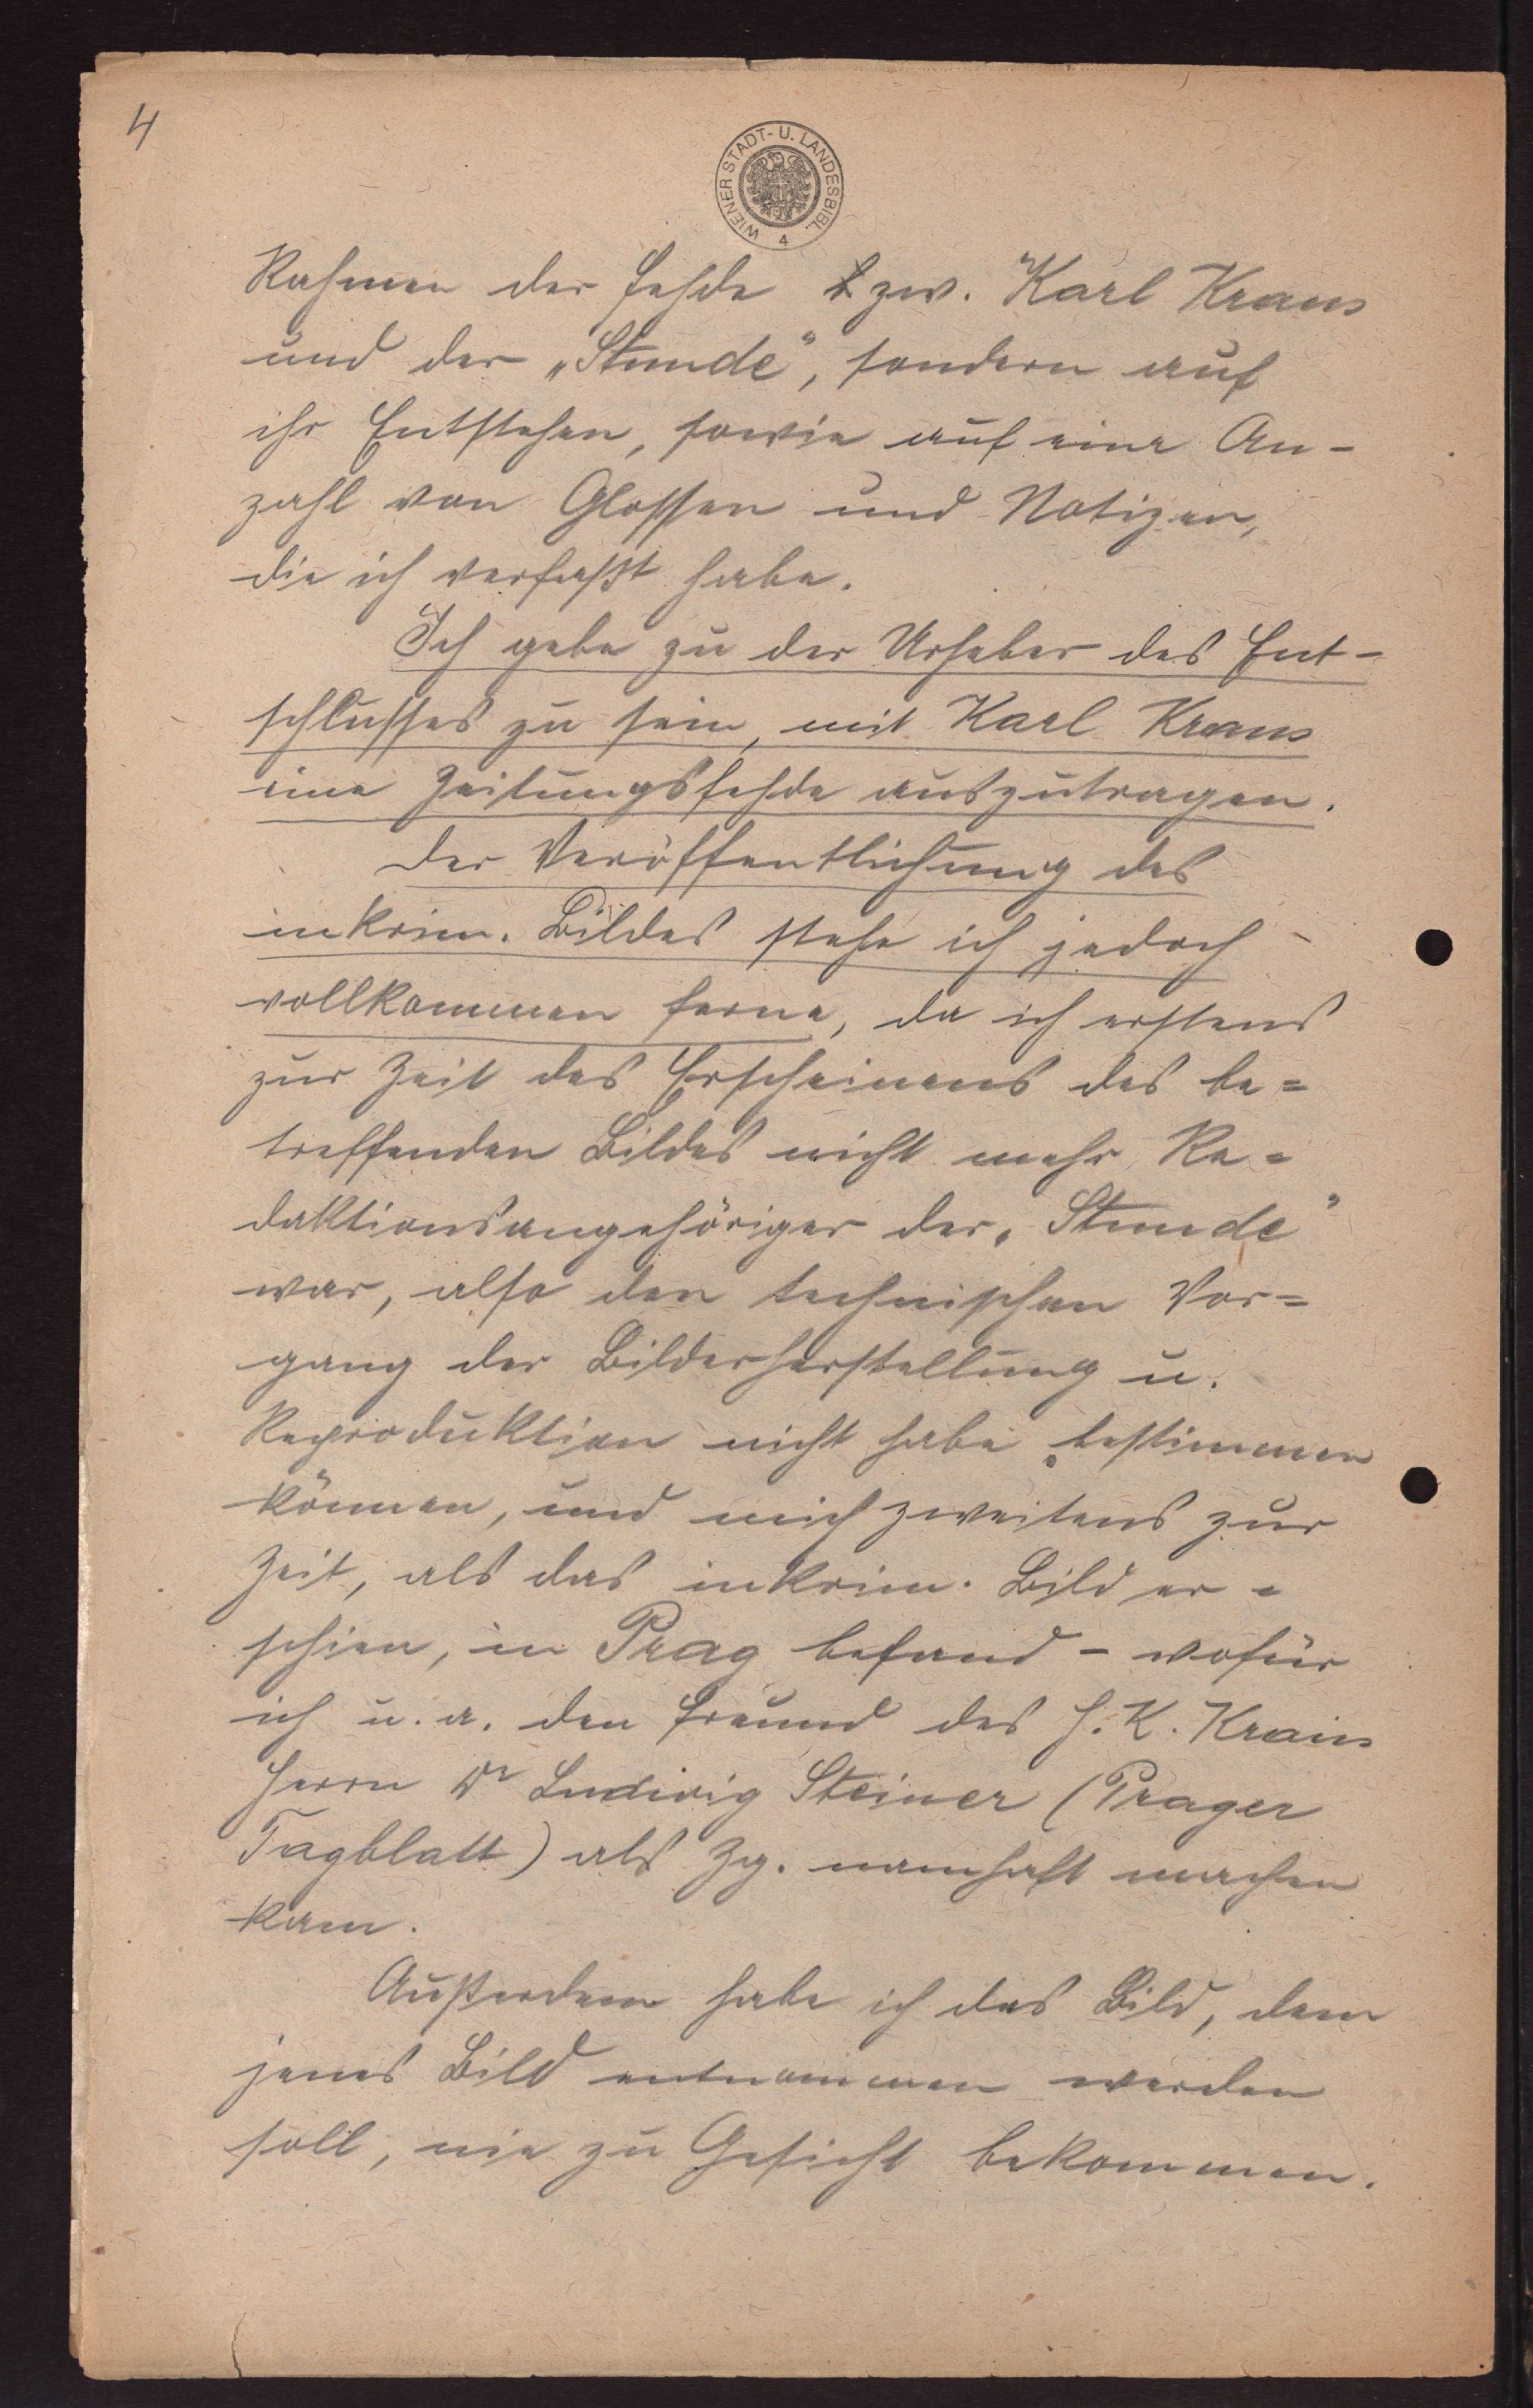 4
WIENER STADT- U. LANDESBIBL.
4
Rahmen der Fehde zw. Karl Kraus
und der „Stunde“, sondern auf
ihr Entstehen, sowie auf eine An-
zahl von Glossen und Notizen,
die ich verfaßt habe.
Ich gebe zu der Urheber des Ent-
schlusses zu sein, mit Karl Kraus
eine Zeitungsfehde auszutragen.
Der Veröffentlichung des
inkrim. Bildes stehe ich jedoch
vollkommen ferne, da ich erstens
zur Zeit des Erscheinens des be=
treffenden Bildes nicht mehr Re=
daktionsangehöriger der „Stunde“
war, also den technischen Vor=
gang der Bilderherstellung u.
Reproduktion nicht habe bestimmen
können, und mich zweitens zur
Zeit, als das inkrim. Bild er=
schien, in Prag befand – wofür
ich u. a. den Freund des H. K. Kraus
Herrn Dr Ludwig Steiner (Prager
Tagblatt) als Zg. namhaft machen
kann.
Außerdem habe ich das Bild, dem
jenes Bild entnommen werden
soll, nie zu Gesicht bekommen.